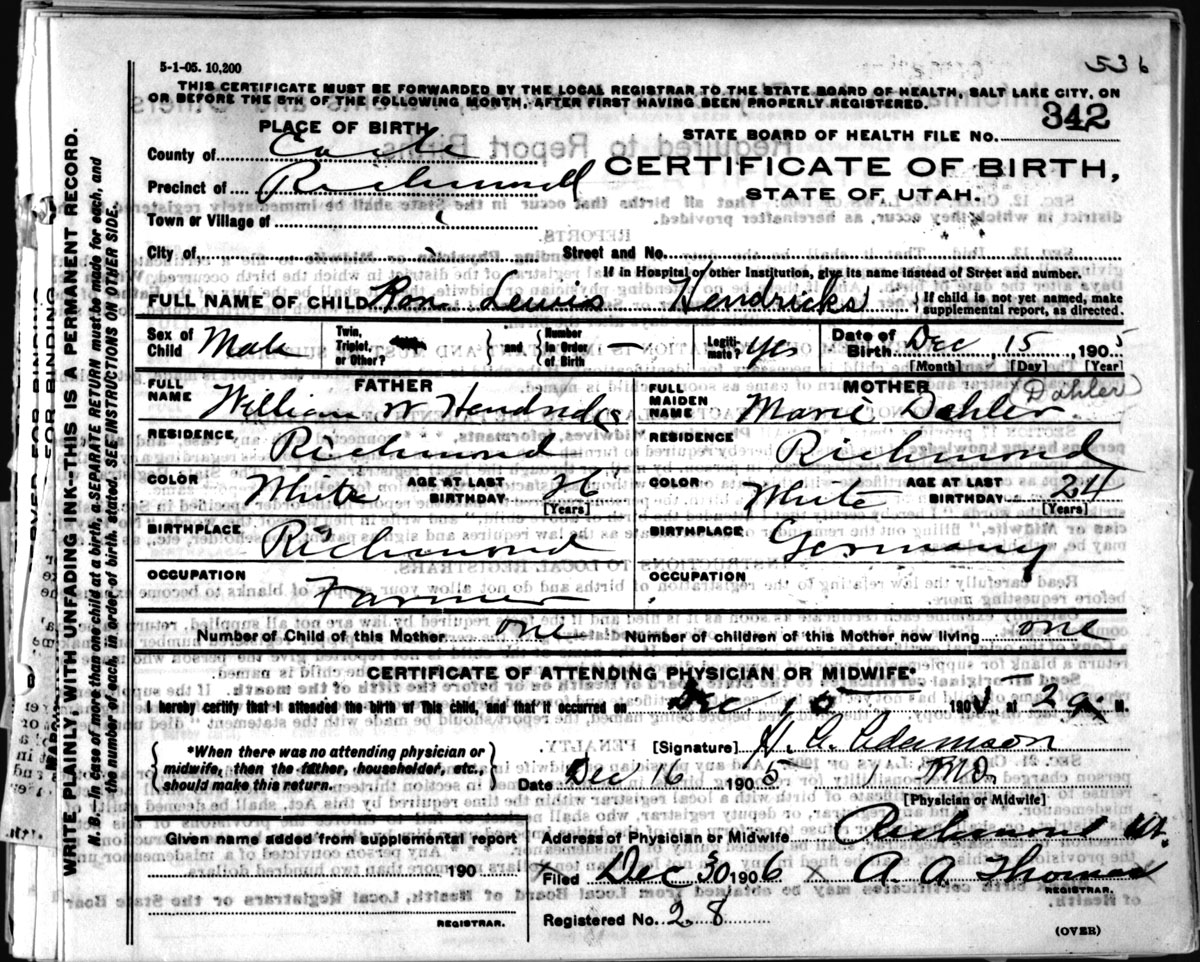 5-1-05. 10,200
536
THIS CERTIFICATE MUST BE FORWARDED BY THE LOCAL REGISTRAR TO THE STATE BOARD OF HEALTH, SALT LAKE CITY, ON
OR BEFORE THE 5TH OF THE FOLLOWING MONTH, AFTER FIRST HAVING BEEN PROPERLY REGISTERED.
PLACE OF BIRTH
STATE BOARD OF HEALTH FILE NO. 342
County of Cache
CERTIFICATE OF BIRTH,
Precinct of Richmond
STATE OF UTAH.
Town or Village of
City of Street and No.
If in Hospital or other Institution, give its name instead of Street and number.
FULL NAME OF CHILD Ron Lewis Hendricks { If child is not yet named, make supplemental report, as directed.
Sex of Child Male Twin, Triplet, or Other? } and { Number in Order of Birth — Legitimate? Yes Date of Birth Dec, 15, 1905
[Month] [Day] [Year]
FATHER
MOTHER (Dahler)
FULL NAME William W Hendricks
FULL MAIDEN NAME Marie Dahler
RESIDENCE Richmond
RESIDENCE Richmond
COLOR White AGE AT LAST BIRTHDAY 26 [Years]
COLOR White AGE AT LAST BIRTHDAY 24 [Years]
BIRTHPLACE Richmond
BIRTHPLACE Germany
OCCUPATION Farmer
OCCUPATION
Number of Child of this Mother one Number of children of this Mother now living one
CERTIFICATE OF ATTENDING PHYSICIAN OR MIDWIFE
I hereby certify that I attended the birth of this child, and that it occurred on Dec 15 1905, at 2 a M.
{ *When there was no attending physician or midwife, then the father, householder, etc., should make this return. }
[Signature] H. A. Adamson
Date Dec 16 1905 MD.
[Physician or Midwife]
Given name added from supplemental report
190
REGISTRAR.
Address of Physician or Midwife Richmond Ut.
x Filed Dec 30 1906 x A A Thomas x
REGISTRAR.
Registered No. 28
(OVER)
WRITE PLAINLY WITH UNFADING INK--THIS IS A PERMANENT RECORD.
N. B.—In case of more than one child at a birth, a SEPARATE RETURN must be made for each, and
the number of each, in order of birth, stated. SEE INSTRUCTIONS ON OTHER SIDE.